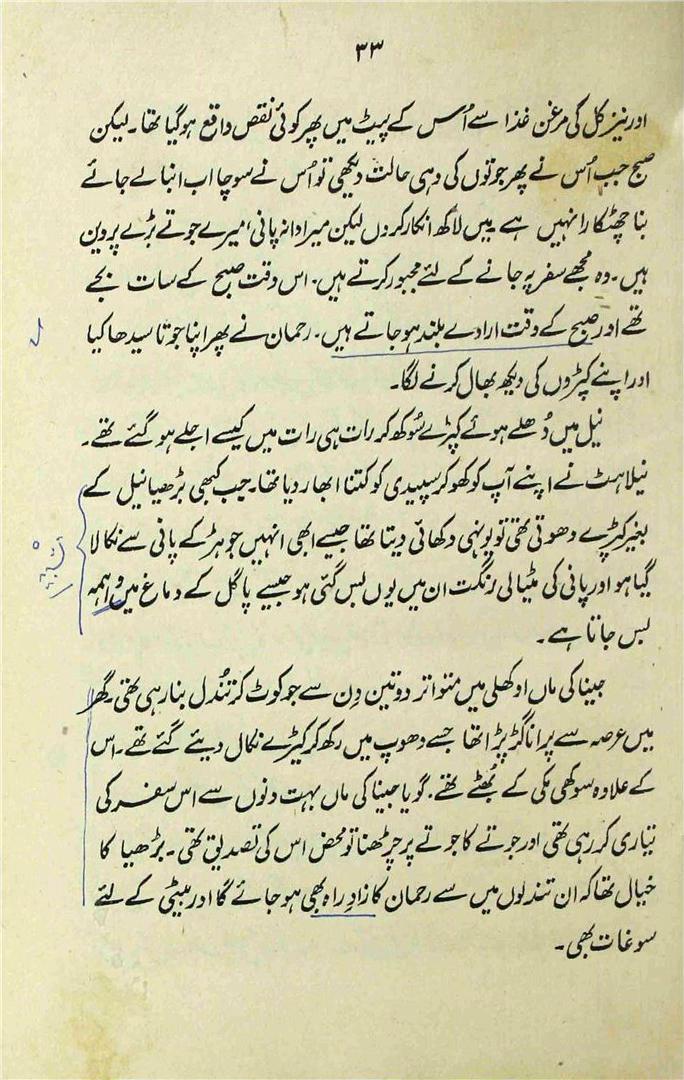 ۳۳
اور نیز کل کی مرغن غذا سے اُس کے پیٹ میں پھر کوئی نقص واقع ہو گیا تھا۔ لیکن
صبح جب اُس نے پھر جوتوں کی وہی حالت دیکھی تو اُس نے سوچا اب انبالے جائے
بنا چھٹکارا نہیں ہے میں لاکھ انکار کروں لیکن میرا دانہ پانی، میرے جوتے بڑے پروین
ہیں۔ وہ مجھے سفر پہ جانے کے لئے مجبور کرتے ہیں۔ اس وقت صبح کے سات بجے
تھے اور صبح کے وقت ارادے بلند ہو جاتے ہیں۔ رحمان نے پھر اپنا جوتا سیدھا کیا
اور اپنے کپڑوں کی دیکھ بھال کرنے لگا۔
نیل میں دُھلے ہوئے کپڑے سُوکھ کر رات ہی رات میں کیسے اجلے ہو گئے تھے۔
نیلاہٹ نے اپنے آپ کو کھو کر سپیدی کو کتنا ابھار دیا تھا۔ جب کبھی بڑھیا نیل کے
بغیر کپڑے دھوتی تھی تو یونہی دکھائی دیتا تھا جیسے ابھی انہیں جوہڑ کے پانی سے نکالا
گیا ہو اور پانی کی مٹیالی رنگت ان میں یوں بس گئی ہو جیسے پاگل کے دماغ میں واہمہ
بس جاتا ہے۔
جینا کی ماں اوکھلی میں متواتر دو تین دِن سے جو کوٹ کر تندُل بنا رہی تھی۔ گھر
میں عرصہ سے پرانا گڑ پڑا تھا جسے دھوپ میں رکھ کر کیڑے نکال دیئے گئے تھے۔ اس
کے علاوہ سوکھی مکی کے بُھٹے تھے۔ گویا جینا کی ماں بہت دنوں سے اس سفر کی
تیاری کر رہی تھی اور جوتے کا جوتے پر چڑھنا تو محض اس کی تصدیق تھی۔ بڑھیا کا
خیال تھا کہ ان تندلوں میں سے رحمان کا زادِ راہ بھی ہو جائے گا اور بیٹی کے لئے
سوغات بھی۔